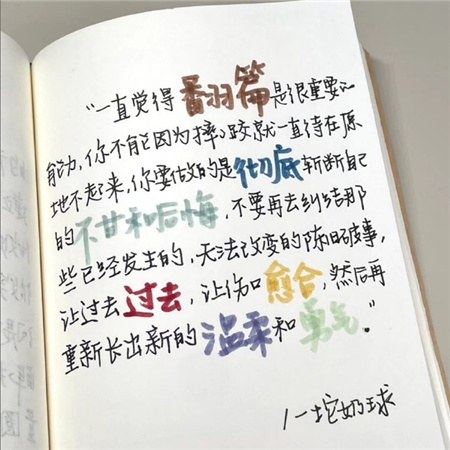 “一直觉得翻篇是很重要的
能力，你不能因为摔跤就一直待在原
地不起来，你要做的是彻底斩断自己
的不甘和后悔，不要再去纠结那
些已经发生的，无法改变的陈旧破事，
让过去过去，让伤口愈合，然后再
重新长出新的温柔和勇气。”
/一坨奶球